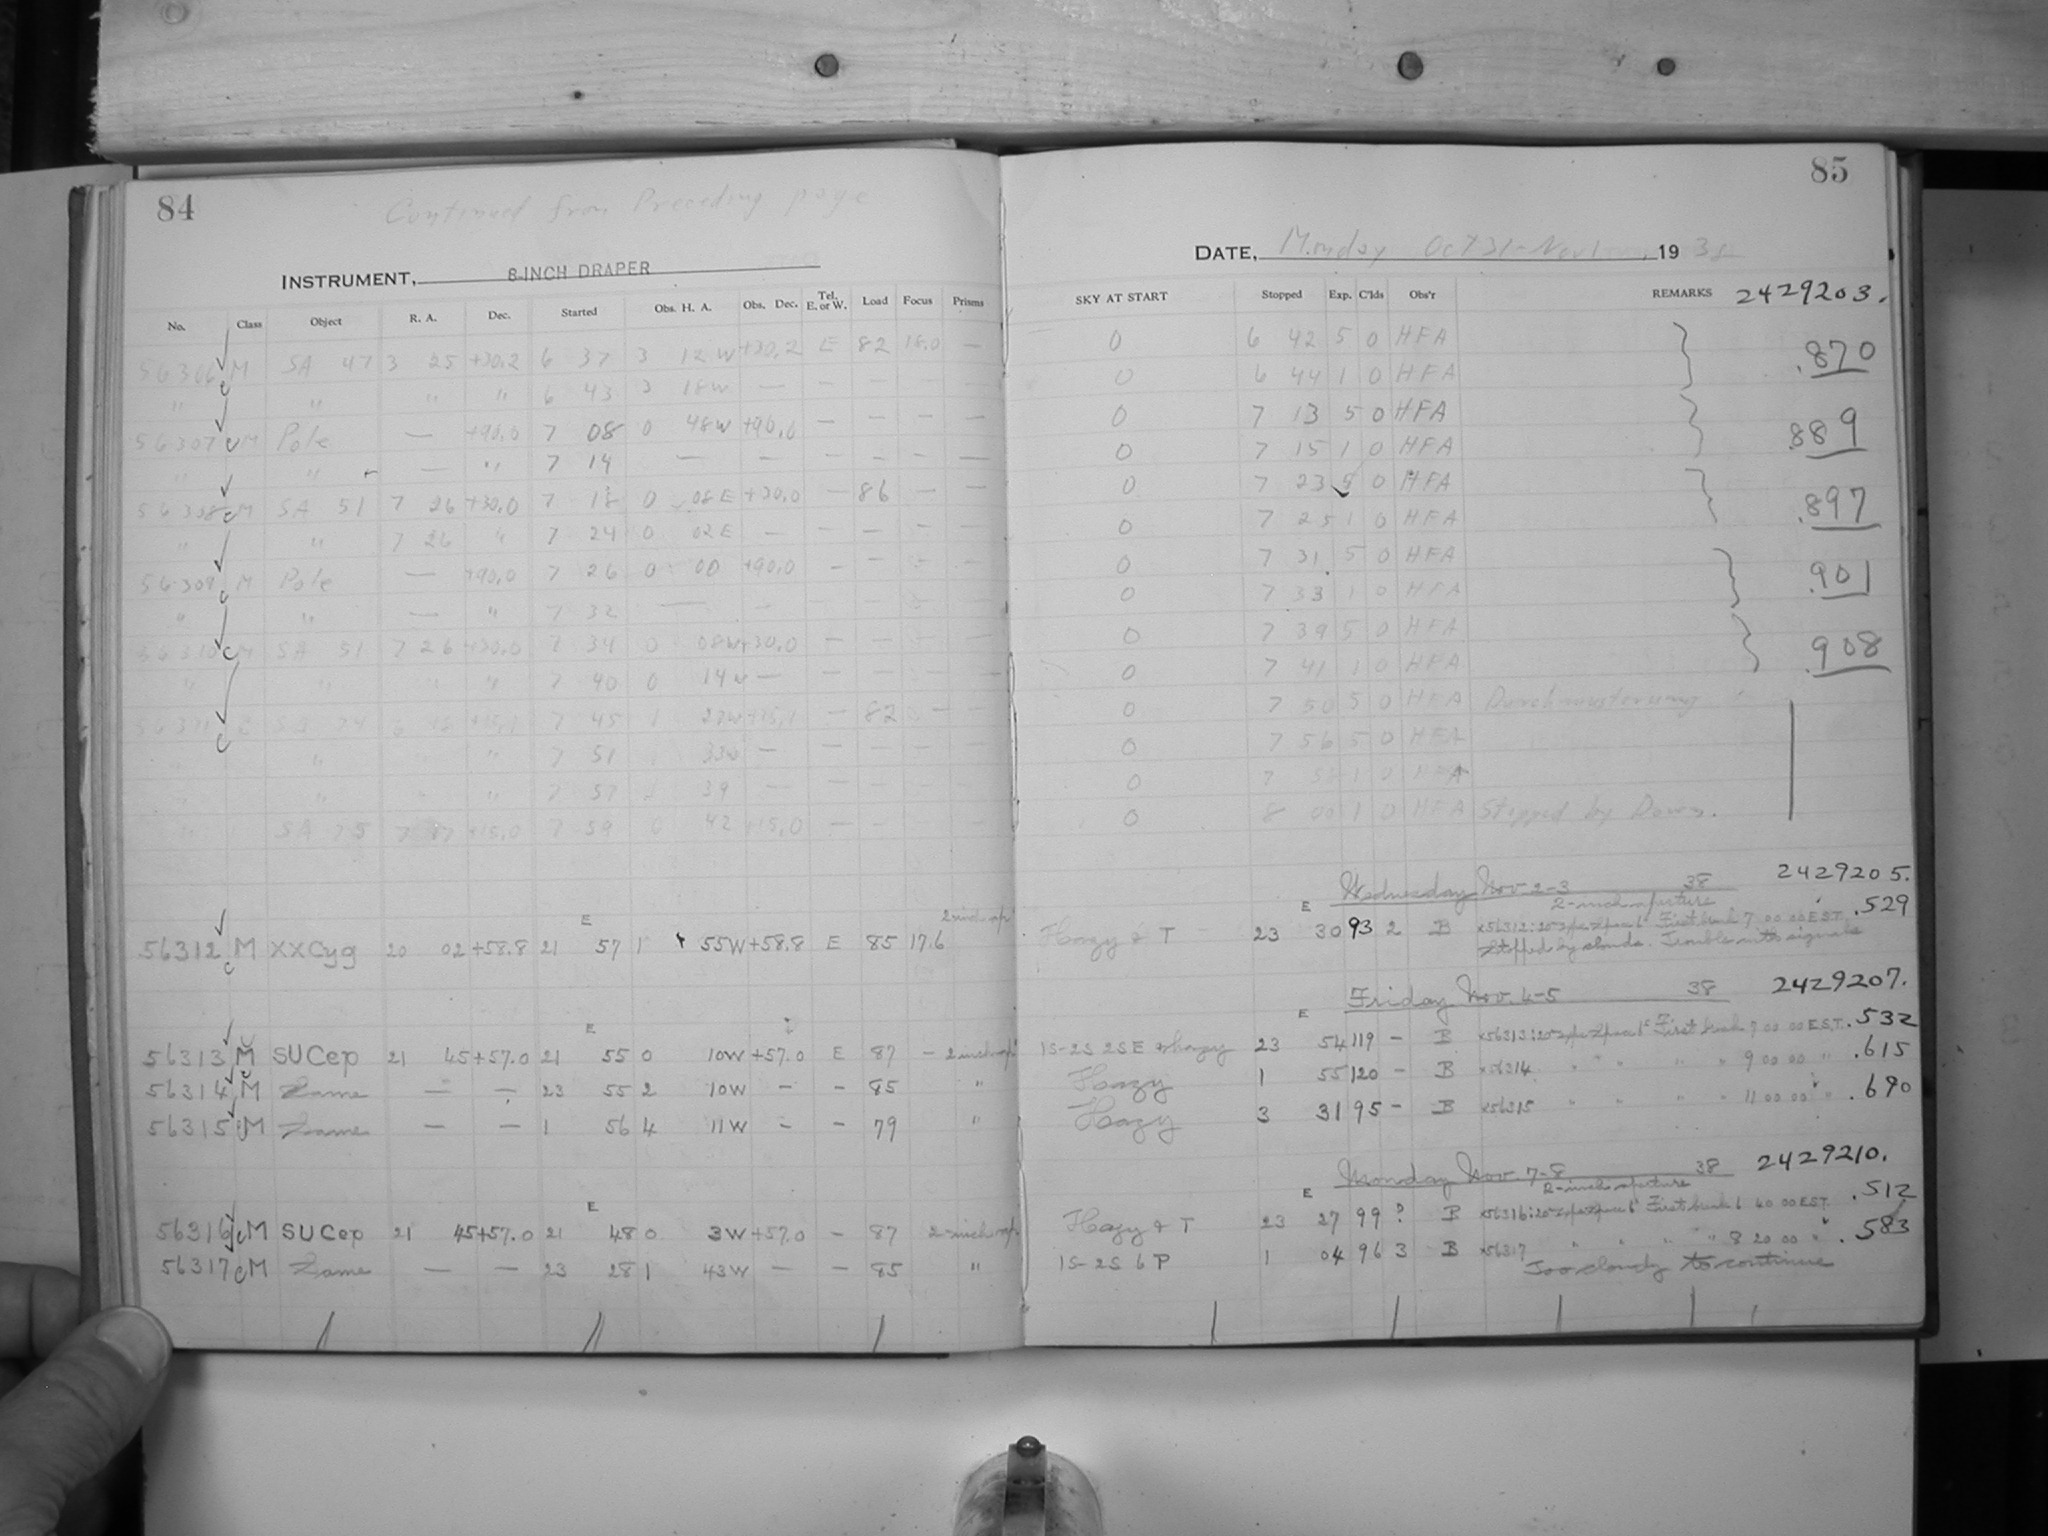 84
Continued from Preceding page
INSTRUMENT, 8-INCH DRAPER
No. Class Object R. A. Dec. Started Obs. H. A. Obs. Dec. Tel. E. or W. Load Focus Prisms
56306 M SA 47 3 25 +30.2 6 37 3 12 W +30.2 E 82 18.0 —
" " " " 6 43 3 18W — — — — —
56307 M Pole — +90.0 7 08 0 48W +90.0 — — — —
" " — " 7 14 — — — — — —
56308 M SA 51 7 26 +30.0 7 18 0 08E +30.0 — 86 — —
" " 7 26 " 7 24 0 02E — — — — —
56309 M Pole — +90.0 7 26 0 00 +90.0 — — — —
" " — " 7 32 — — — — — —
56310 M SA 51 7 26 +30.0 7 34 0 08W +30.0 — — — —
" " " " 7 40 0 14W — — — — —
56311 SA 74 +15.1 7 45 1 27W +15.1 — 82 — —
" " " 7 51 33W — — — — —
" " " " 7 57 39 — — — — —
" SA 75 7 +15.0 7 59 0 42 +15.0 — — — —
2 inch ap
E
56312 M XXCyg 20 02 +58.8 21 57 1 55W +58.8 E 85 17.6
E
56313 M SUCep 21 45 +57.0 21 55 0 10W +57.0 E 87 — 2 inch ap
56314 M Same — — 23 55 2 10W — — 85 "
56315 M Same — — 1 56 4 11W — — 79 "
E
56316 M SUCep 21 45 +57.0 21 48 0 3W +57.0 — 87 2-inch ap
56317 M Same — — 23 28 1 43W — — 85 "
85
DATE, Monday Oct 31-Nov 1, 19 38
SKY AT START Stopped Exp. C'lds Obs'r REMARKS 2429203.
0 6 42 5 0 HFA .870
0 6 44 1 0 HFA
0 7 13 5 0 HFA .889
0 7 15 1 0 HFA
0 7 23 5 0 HFA .897
0 7 25 1 0 HFA
0 7 31 5 0 HFA .901
0 7 33 1 0 HFA
0 7 39 5 0 HFA .908
0 7 41 1 0 HFA
0 7 50 5 0 HFA Durchmusterung
0 7 56 5 0 HFA
0 7 58 1 0 HFA
0 8 00 1 0 HFA Stopped by Dawn.
Wednesday Nov. 2-3 38 2429205.
E 2-inch aperture
Hazy & T 23 30 93 2 B x56312: First break 7 00 00 EST. .529
Stopped by clouds. Trouble with signals
Friday Nov. 4-5 38 2429207.
E
1S-2S 2SE & hazy 23 54 119 — B x56313: First break 7 00 00 E.S.T. .532
Hazy 1 55 120 — B x56314 " " " " 9 00 00 " .615
Hazy 3 31 95 — B x56315 " " " " 11 00 00 " .690
Monday Nov. 7-8 38 2429210.
E 2-inch aperture
Hazy & T 23 27 99 ? B x56316: First break 6 40 00 EST. .512
1S-2S 6P 1 04 96 3 B x56317 " " " " 8 20 00 " .583
Too cloudy to continue